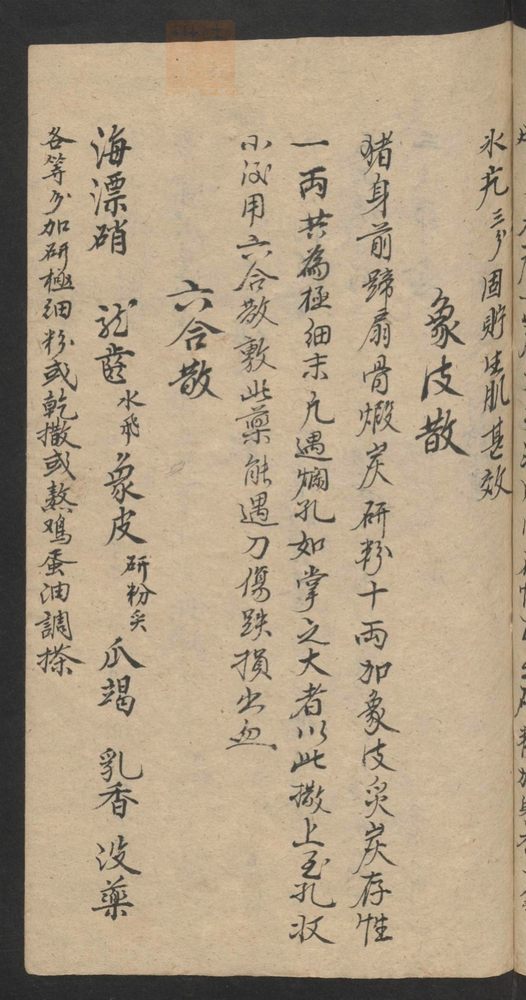 氷片三分固貯生肌甚效
象皮散
猪身前蹄扇骨煅炭研粉十両加象皮炙炭存性
一両共為極細末凡遇爛孔如掌之大者以此撒上至孔收
小後用六合散敷此藥能遇刀傷跌損出血
六合散
海漂硝 龍齒水飛 象皮研粉炙 瓜竭 乳香 没藥
各等分加研極細粉或乾撒或熬鳮蛋油調搽